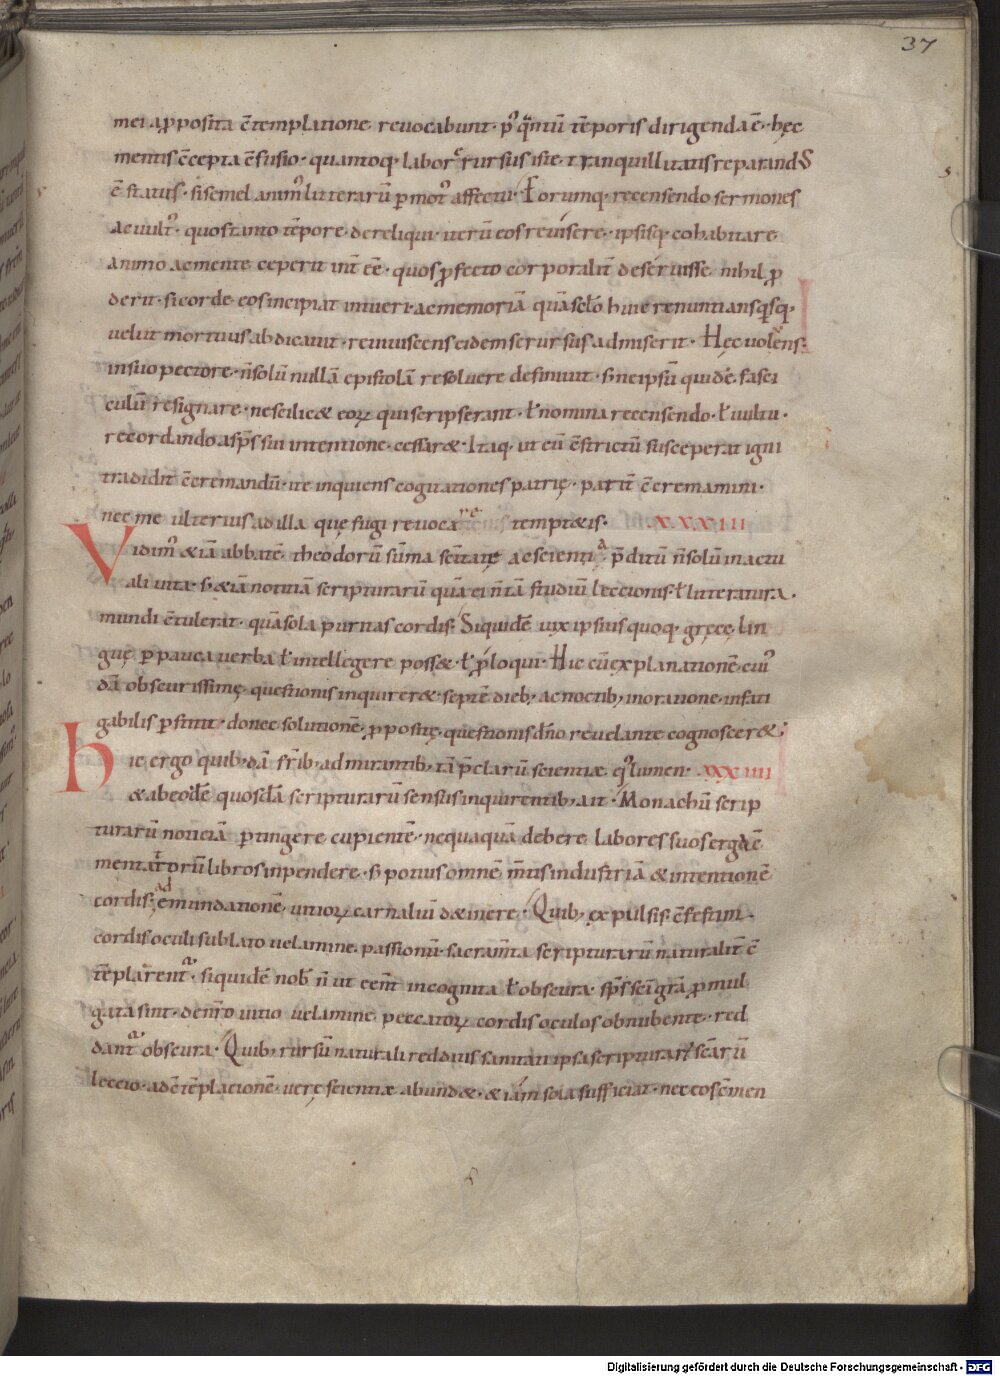 37
mei a ꝓposita c̄templatione revocabunt · p' quantū tēporis dirigenda ē · hęc
mentis c̄cepta c̄fusio · quantoq; labore rursus iste tranquillitatis reparandus
ē status · si semel animū litterarū p̱motꝰ affectu · Eorumq; recensendo sermones
ac vultꝰ · quos tanto tēpore dereliqui · iterū eos revisere · ipsisq; cohabitare
animo ac mente ceperit int̄ēē · quos ꝓfecto corporalit̄ deseruisse nihil ꝓ
derit · si corde eos incipiat intueri · ac memoriā quā sclo huic renuntians q̄sq̄
velut mortuus abdicavit · reviviscens eidem se rursus admiserit · Hęc volvens
in suo pectore · n̄ solū nullā epistolā resolvere definivit · sꝫ ne ipsū quidē fasci
culū resignare · ne scilic& eoꝝ qui scripserant · ł nomina recensendo · ł vultū ·
recordando a sp̄s sui intentione cessar& · Itaq; ut eū c̄strictū susceperat igni
tradidit c̄cremandū · ite inquiens cogitationes patrię · parit̄ c̄cremamini ·
nec me ulterius ad illa quę fugi revocare temptetis · XXXIII
Vidimꝰ & iā abbatē theodorū sūma sc̄itate ac scientia p̄ditū n̄ solū in actu
ali vita · sꝫ & iā notitiā scripturarū quā ei n̄ tā studiū leccionis · ł litteratura ·
mundi c̄tulerat · quā sola puritas cordis · Siquidē vix ipsius quoq; gręcę lin
guę p̱pauca verba ł intellegere poss& · ł ꝓloqui · Hic cū explanationē cuiꝰ
dā obscurissimę questionis inquirer& · septē dieb; ac noctib; in oratione infati
gabilis p̱stitit · donec solutionē ꝓpositę questionis dn̄o revelante cognoscer& ·
Hic ergo quib;dā fr̄ib; admirantib; tā p̄clarū scientiæ eiꝰ lumen · XXXIIII
& ab eodē quosdā scripturarū sensus inquirentib; ait · Monachū scrip
turarū noticiā p̱tingere cupientē · nequaquā debere labores suos erga c̄
mentatorū libros inpendere · sꝫ potius omnē m̄tis industriā & intentionē
cordis · ad emundationē vitioꝝ carnaliū detinere · Quib; expulsis c̄festim ·
cordis oculi sublato velamine passionū · sacram̄ta scripturarū naturalit̄ c̄
tēplarentur · siquidē nob̄ n̄ ut eēnt incognita ł obscura · sp̄s sc̄i gr̄a ꝓmul
gata sint · de nr̄o vitio velamine peccatoꝝ cordis oculos obnubente · red
dantur obscura · Quib; rursū naturali redditis sanitati ipsa scripturarū sc̄arū
leccio · ad c̄tēplacionē verę scientiæ abund& · & iam sola sufficiat · nec eos c̄men
Digitalisierung gefördert durch die Deutsche Forschungsgemeinschaft - DFG